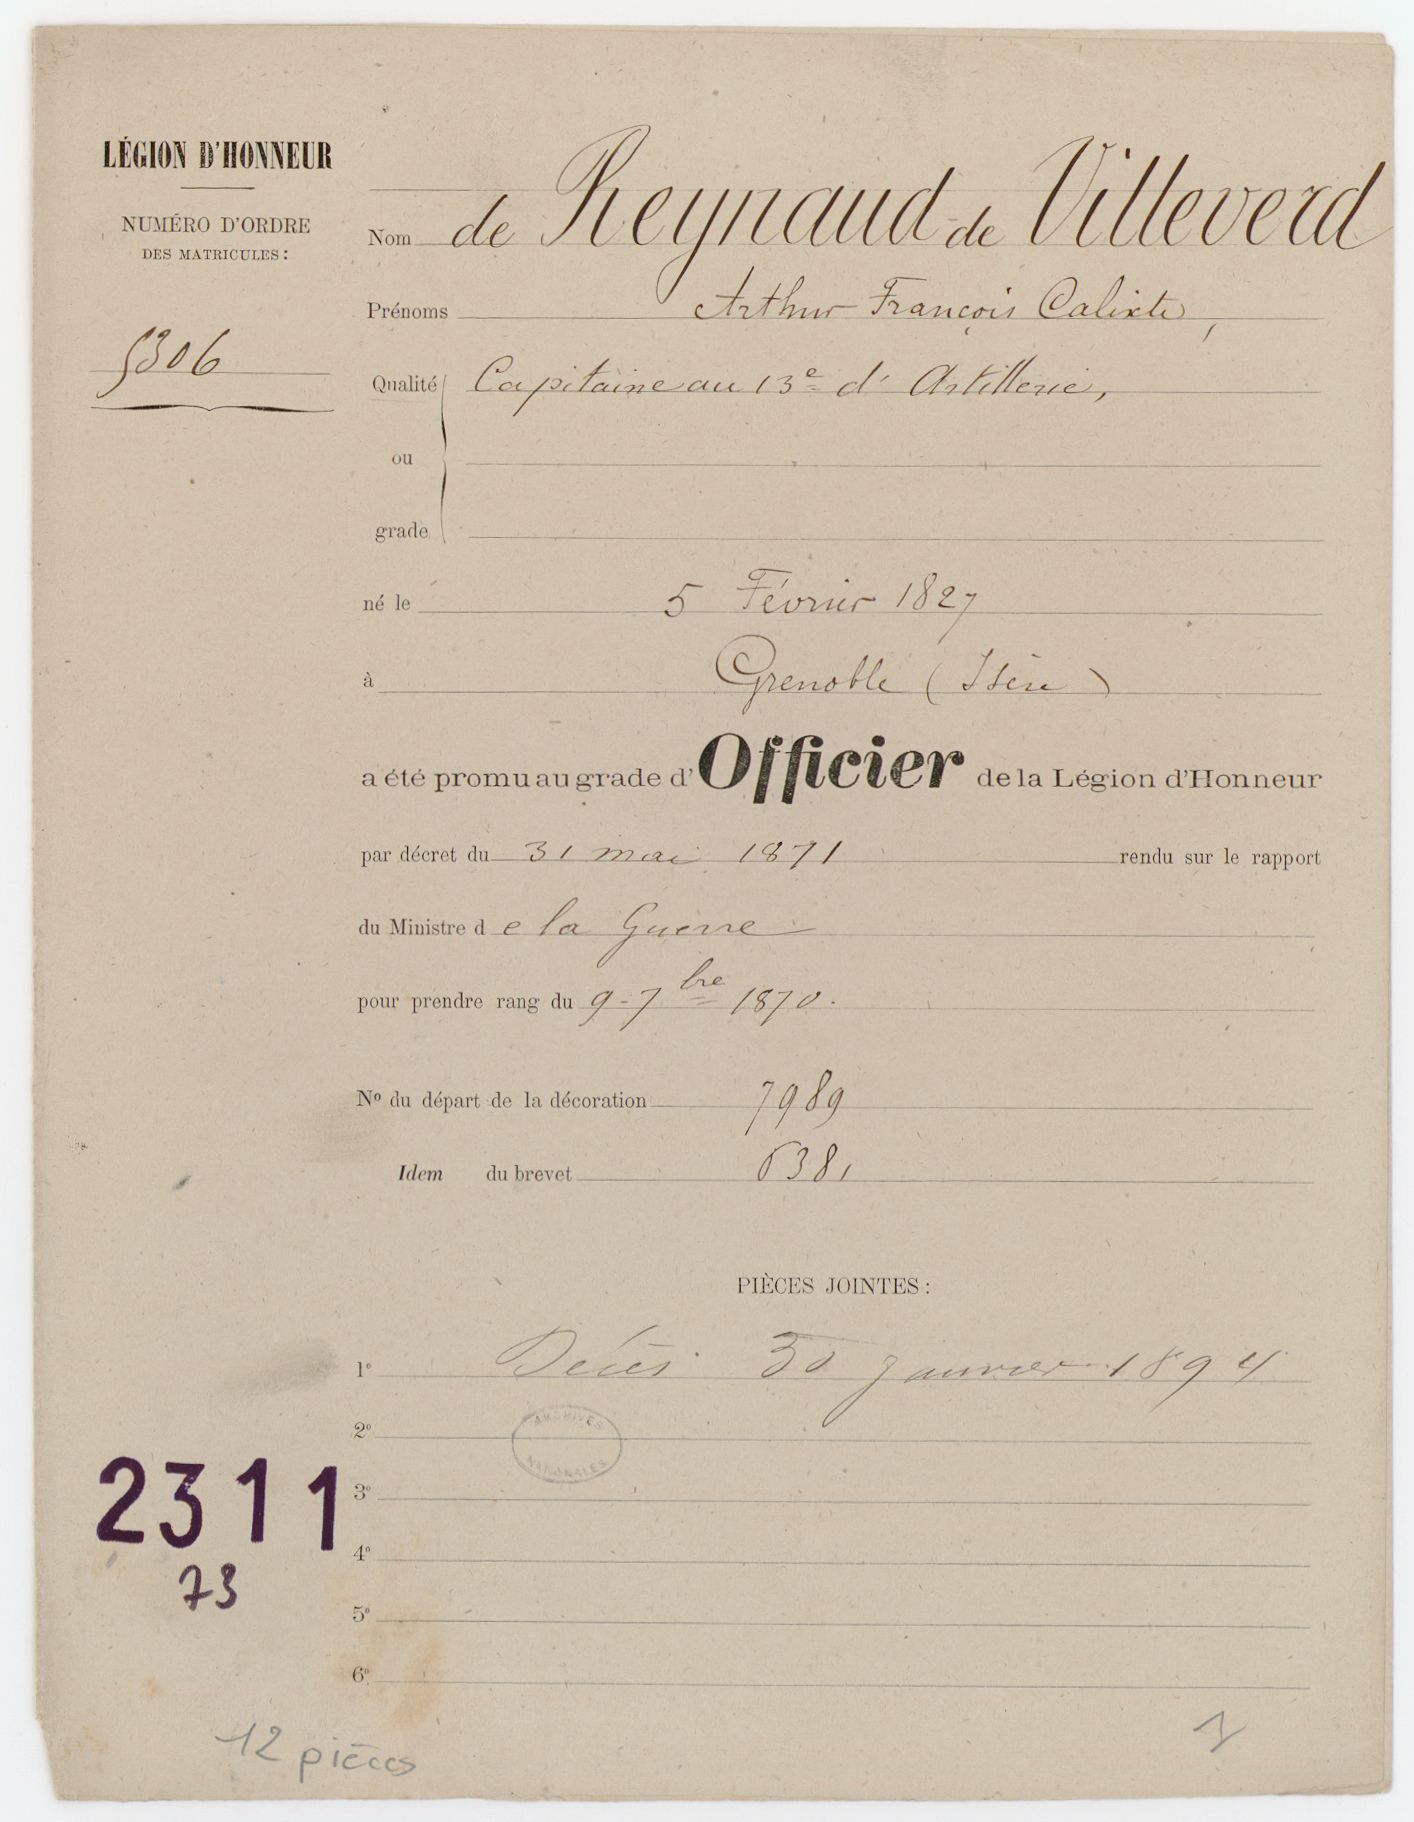 LÉGION D'HONNEUR
NUMÉRO D'ORDRE
DES MATRICULES :
5306
Nom de Reynaud de Villeverd
Prénoms Arthur François Calixte,
Qualité Capitaine au 13e d'Artillerie,
ou
grade
né le 5 Février 1827
à Grenoble (Isère)
a été promu au grade d'Officier de la Légion d'Honneur
par décret du 31 mai 1871 rendu sur le rapport
du Ministre de la Guerre
pour prendre rang du 9 - 7bre 1870.
No du départ de la décoration 7989
Idem du brevet 6381
PIÈCES JOINTES :
1o Décès 30 Janvier 1894
2o
ARCHIVES
NATIONALES
3o
4o
5o
6o
2311
73
12 pièces
1